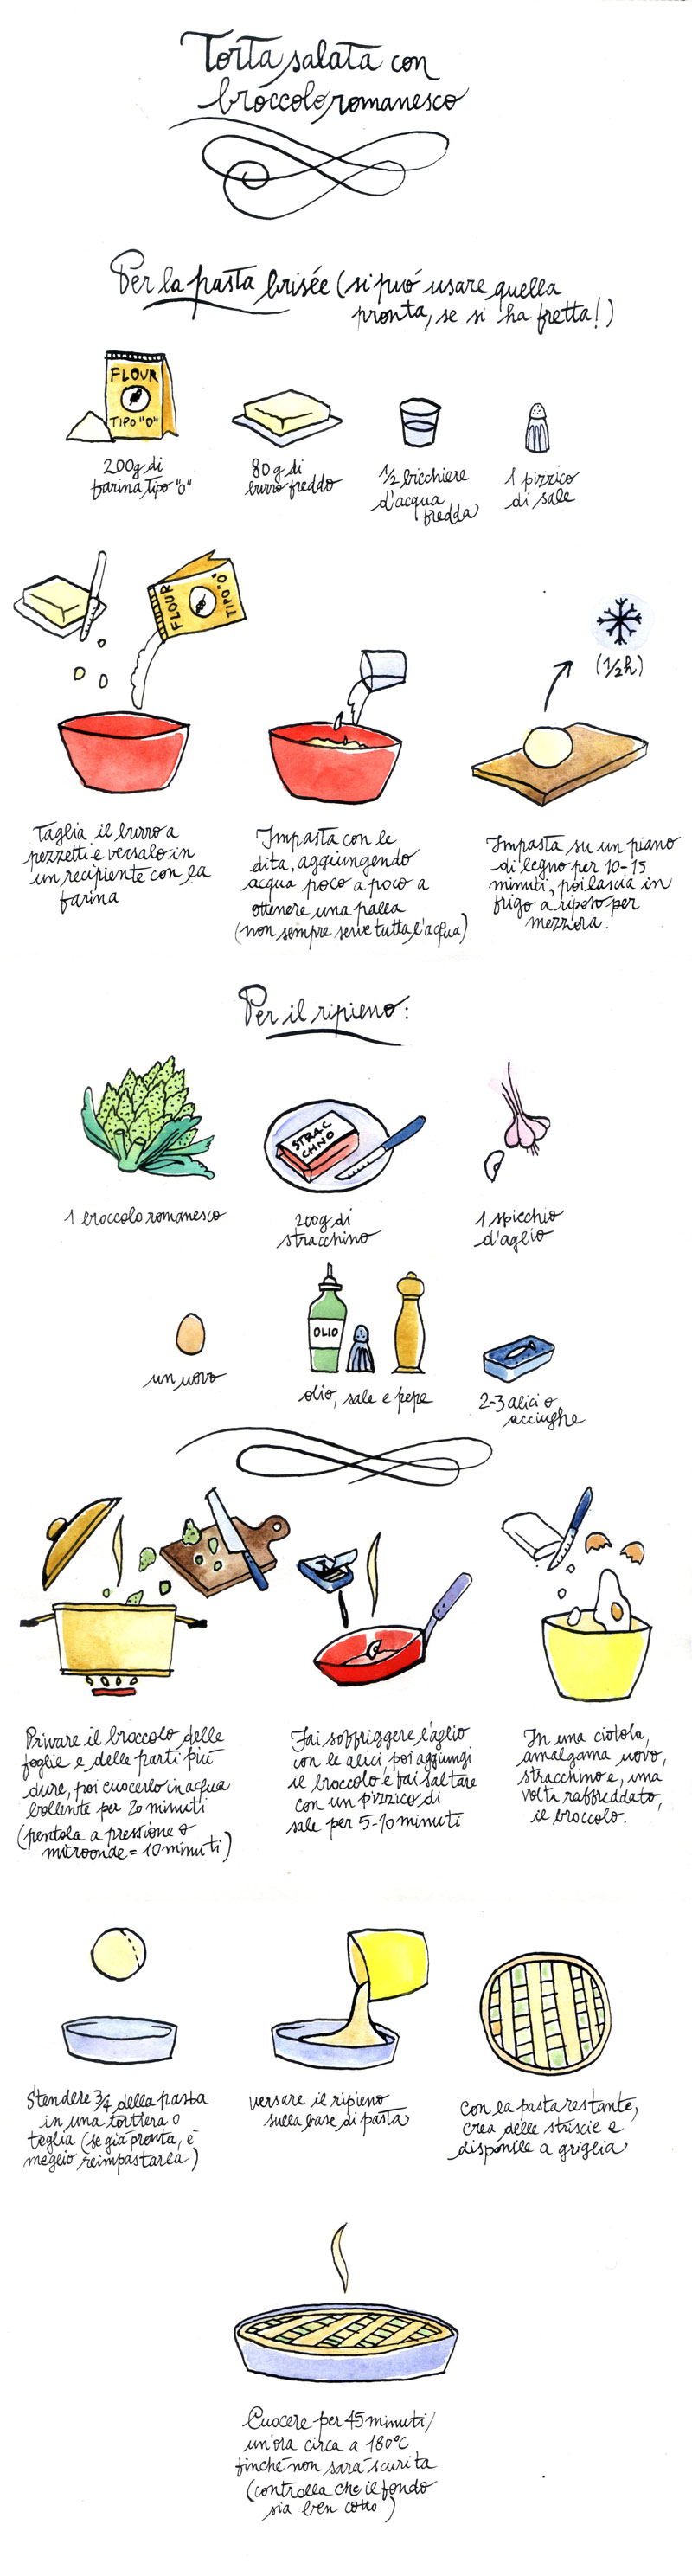 Torta salata con
broccolo romanesco
Per la pasta brisée (si può usare quella
pronta, se si ha fretta!)
FLOUR
TIPO "0"
200g di
farina tipo "0"
80g di
burro freddo
1/2 bicchiere
d'acqua
fredda
1 pizzico
di sale
FLOUR
TIPO "0"
(1/2h)
Taglia il burro a
pezzetti e versalo in
un recipiente con la
farina
Impasta con le
dita, aggiungendo
acqua poco a poco a
ottenere una palla
(non sempre serve tutta l'acqua)
Impasta su un piano
di legno per 10-15
minuti, poi lascia in
frigo a riposo per
mezz'ora.
Per il ripieno:
STRAC
CHNO
1 broccolo romanesco
200g di
stracchino
1 spicchio
d'aglio
OLIO
un uovo
olio, sale e pepe
2-3 alici o
acciughe
Privare il broccolo delle
foglie e delle parti più
dure, poi cuocerlo in acqua
bollente per 20 minuti
(pentola a pressione o
microonde = 10 minuti)
Fai soffriggere l'aglio
con le alici, poi aggiungi
il broccolo e fai saltare
con un pizzico di
sale per 5-10 minuti
In una ciotola,
amalgama uovo,
stracchino e, una
volta raffreddato,
il broccolo.
Stendere 3/4 della pasta
in una tortiera o
teglia (se già pronta, è
meglio reimpastarla)
versare il ripieno
sulla base di pasta
con la pasta restante,
crea delle striscie e
disponile a griglia
Cuocere per 45 minuti/
un'ora circa a 180°C
finché non sarà scurita
(controlla che il fondo
sia ben cotto)